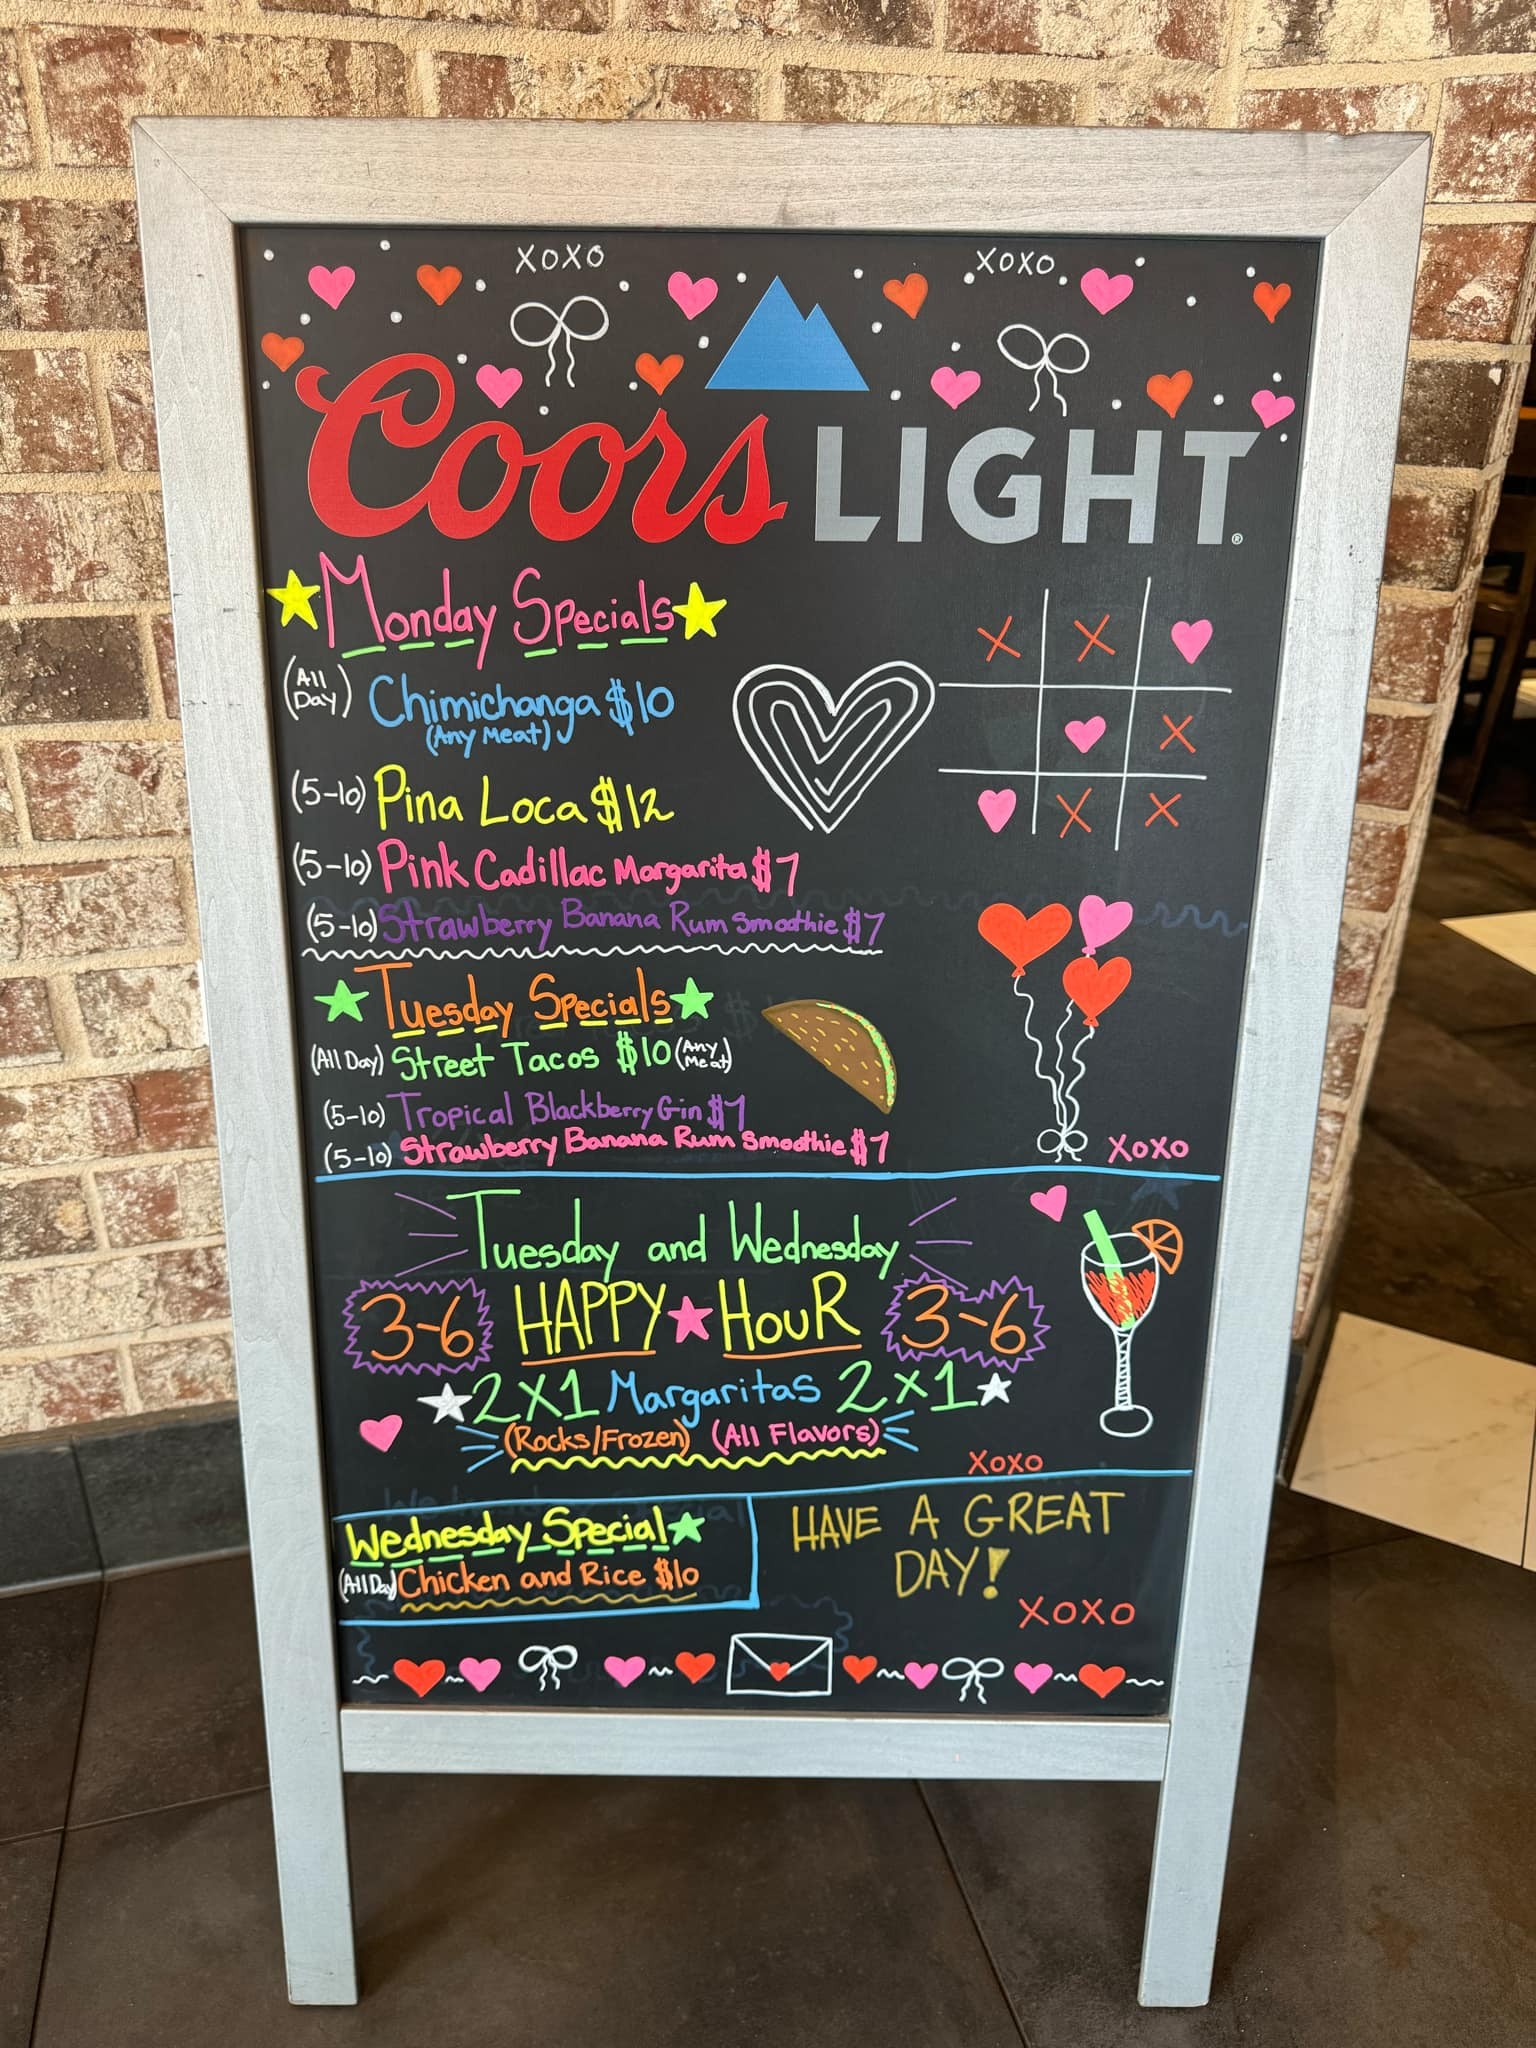 XOXO XOXO
Coors LIGHT®
Monday Specials
(All Day) Chimichanga $10
(Any Meat)
(5-10) Pina Loca $12
(5-10) Pink Cadillac Margarita $7
(5-10) Strawberry Banana Rum Smoothie $7
Tuesday Specials
(All Day) Street Tacos $10 (Any Meat)
(5-10) Tropical Blackberry Gin $7
(5-10) Strawberry Banana Rum Smoothie $7
XOXO
Tuesday and Wednesday
3-6 HAPPY HOUR 3-6
2X1 Margaritas 2X1
(Rocks/Frozen) (All Flavors)
XOXO
Wednesday Special
(All Day) Chicken and Rice $10
HAVE A GREAT
DAY!
XOXO